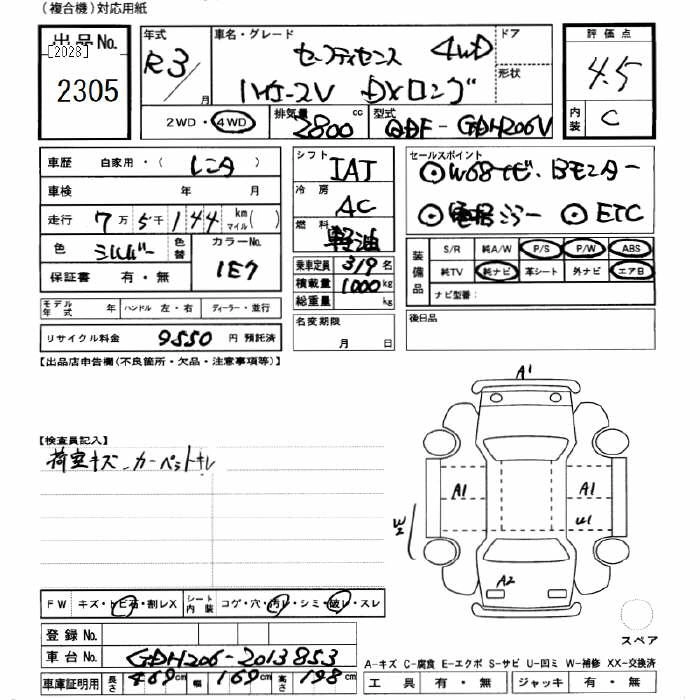 (複合機)対応用紙
出品No. [2028] 2305
年式 R3/ 月
車名・グレード セーフティセンス 4WD
ハイエースV DXロング
ドア
形状
評価点 4.5
内装 C
2WD・4WD 排気量 2800 cc 型式 QDF-GDH206V
車歴 自家用・( レンタ )
車検 年 月
走行 7万5千144 km マイル( )
色 シルバー 色替 カラーNo. 1E7
保証書 有・無
シフト IAT
冷房 AC
燃料 軽油
乗車定員 3/9 名
積載量 1000 kg
総重量 kg
セールスポイント
W68ナビ・Bモニター
電格ミラー ETC
装備品 S/R 純A/W P/S P/W ABS
純TV 純ナビ 革シート 外ナビ エアB
ナビ型番:
モデル年式 年 ハンドル 左・右 ディーラー・並行
リサイクル料金 9550 円 預託済
名変期限 月 日
後日品
【出品店申告欄(不良箇所・欠品・注意事項等)】
【検査員記入】
荷室キズ、カーペットキレ
A1
A1 A1
W2 U1
A2
スペア
FW キズ・トビ石・割レX シート内装 コゲ・穴・汚レ・シミ・破レ・スレ
登録No.
車台No. GDH206-2013853
車庫証明用 長さ 469cm 幅 169cm 高さ 198cm
A-キズ C-腐食 E-エクボ S-サビ U-凹ミ W-補修 XX-交換済
工具 有・無 ジャッキ 有・無